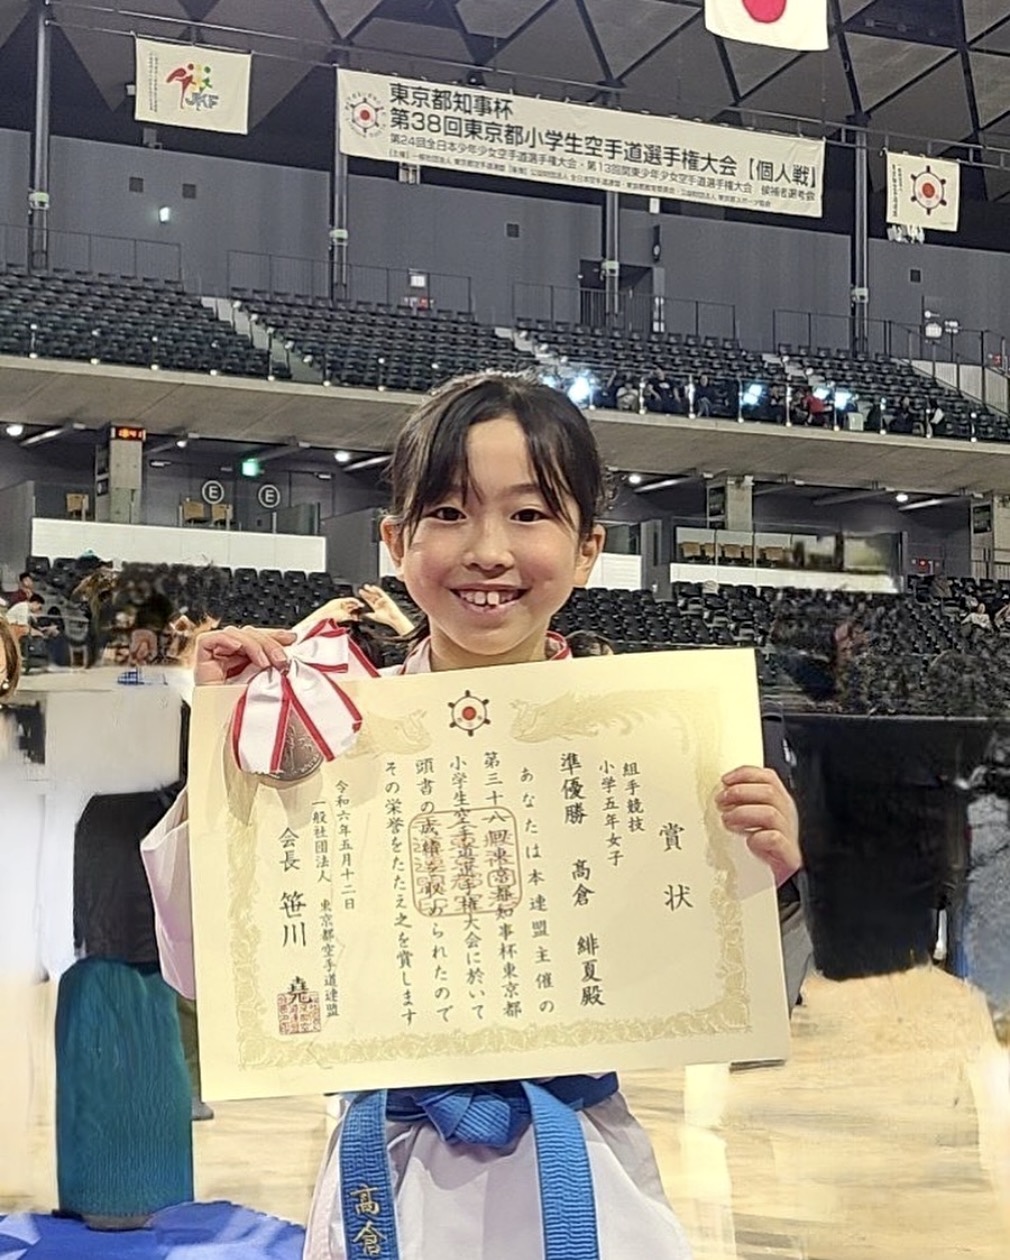 JKF
東京都知事杯
第38回東京都小学生空手道選手権大会【個人戦】
第24回全日本少年少女空手道選手権大会・第13回関東少年少女空手道選手権大会 候補者選考会
E
E
賞状
組手競技
小学五年女子
準優勝 高倉 緋夏殿
あなたは本連盟主催の
第三十八回東京都知事杯東京都
小学生空手道選手権大会に於いて
頭書の成績を収められたので
その栄誉をたたえ之を賞します
令和六年五月十二日
一般社団法人 東京都空手道連盟
会長 笹川 堯
高倉